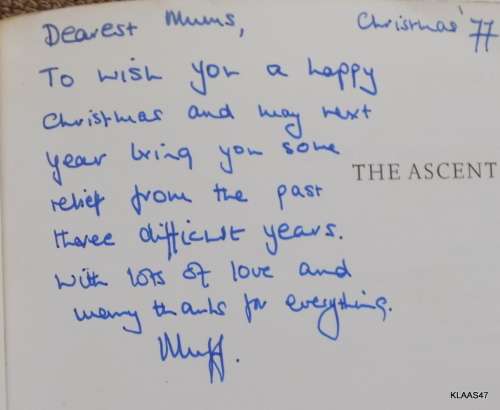 Dearest Mums, Christmas '77
To wish you a happy
Christmas and may next
year bring you some
relief from the past
three difficult years.
With lots of love and
many thanks for everything.
Muff.
THE ASCENT
KLAAS47